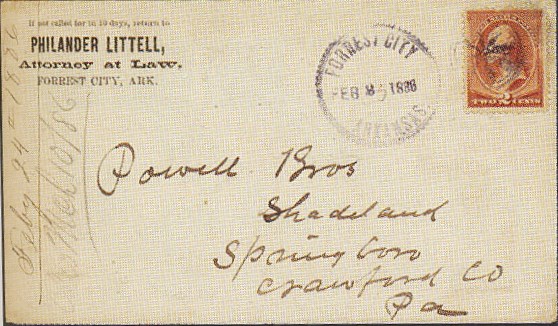 If not called for in 10 days, return to
PHILANDER LITTELL,
Attorney at Law.
FORREST CITY, ARK.
FORREST CITY
FEB 1886
ARKANSAS.
TWO 2 CENTS
Powell Bros
Shadeland
Springboro
Crawford Co
Pa
Feby 24 - 1886
Mch 10/86